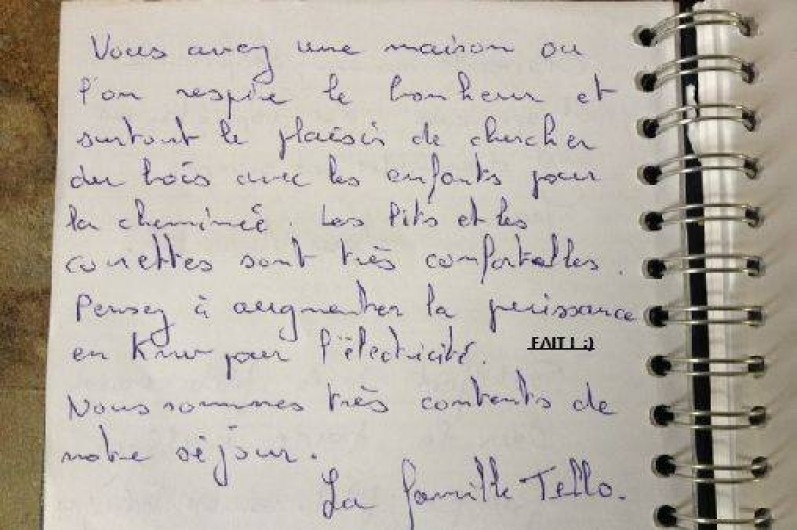 Vous avez une maison ou
l'on respire le bonheur et
surtout le plaisir de chercher
du bois avec les enfants pour
la cheminée. Les lits et les
couettes sont très confortables.
Pensez à augmenter la puissance
en Kw pour l'électricité. FAIT ! :)
Nous sommes très contents de
notre séjour.
La famille Tello.